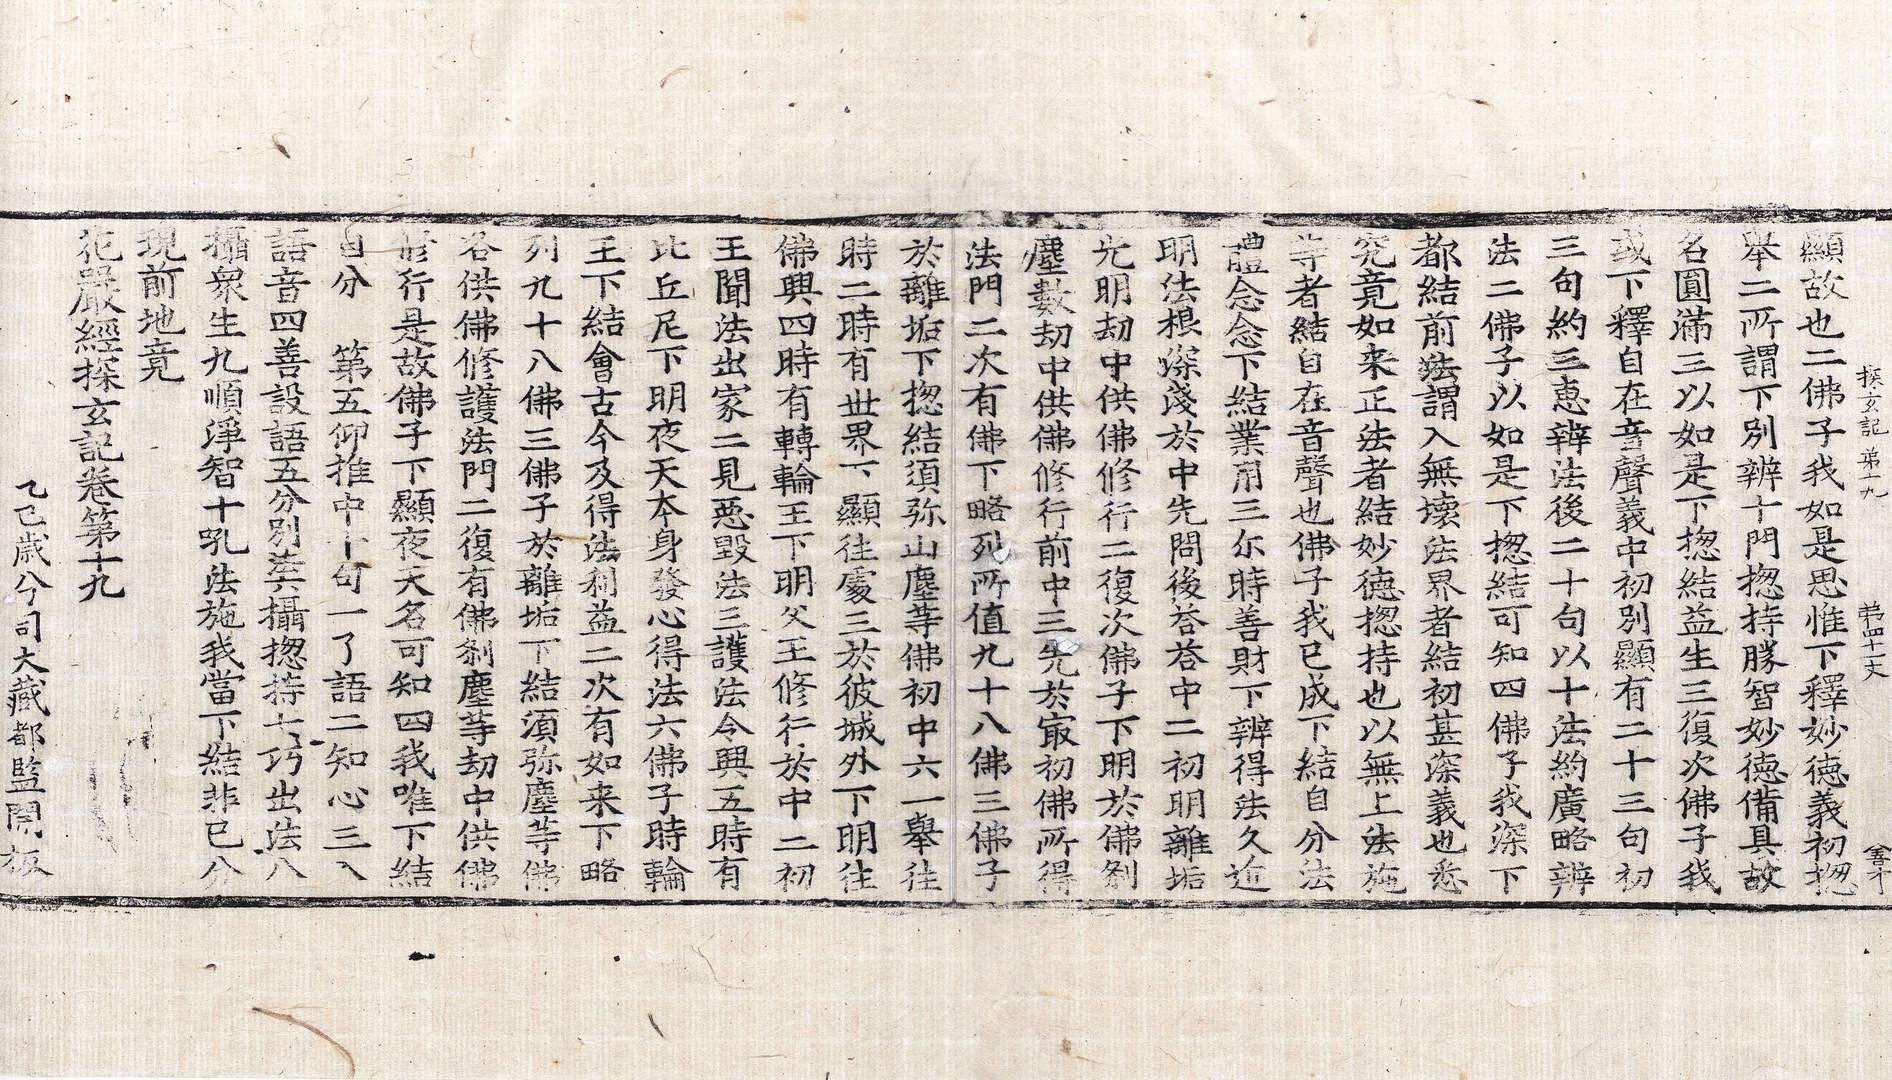 探玄記第十九 第四十一丈 羃
顯故也二佛子我如是思惟下釋妙德義初揔
舉二所謂下別辨十門揔持勝智妙德備具故
名圓滿三以如是下揔結益生三復次佛子我
或下釋自在音聲義中初別顯有二十三句初
三句約三惠辨法後二十句以十法約廣略辨
法二佛子以如是下揔結可知四佛子我深下
都結前法謂入無壞法界者結初甚深義也悉
究竟如来正法者結妙德揔持也以無上法施
等者結自在音聲也佛子我已成下結自分法
體念念下結業用三尒時善財下辨得法久近
明法根深淺於中先問後荅荅中二初明離垢
光明劫中供佛修行二復次佛子下明於佛刹
塵數劫中供佛修行前中三先於㝡初佛所得
法門二次有佛下略列所值九十八佛三佛子
於離垢下揔結須弥山塵等佛初中六一舉往
時二時有世界下顯往處三於彼城外下明往
佛興四時有轉輪王下明父王修行於中二初
王聞法出家二見惡毀法三護法令興五時有
比丘尼下明夜天本身發心得法六佛子時輪
王下結會古今及得法利益二次有如来下略
列九十八佛三佛子於離垢下結須弥塵等佛
各供佛修護法門二復有佛刹塵等劫中供佛
修行是故佛子下顯夜天名可知四我唯下結
自分 第五仰推中十句一了語二知心三入
語音四善設語五分別法六攝揔持七巧出法八
攝衆生九順淨智十吼法施我當下結非已分
現前地竟
花嚴經探玄記卷第十九
乙巳歲分司大藏都監開板